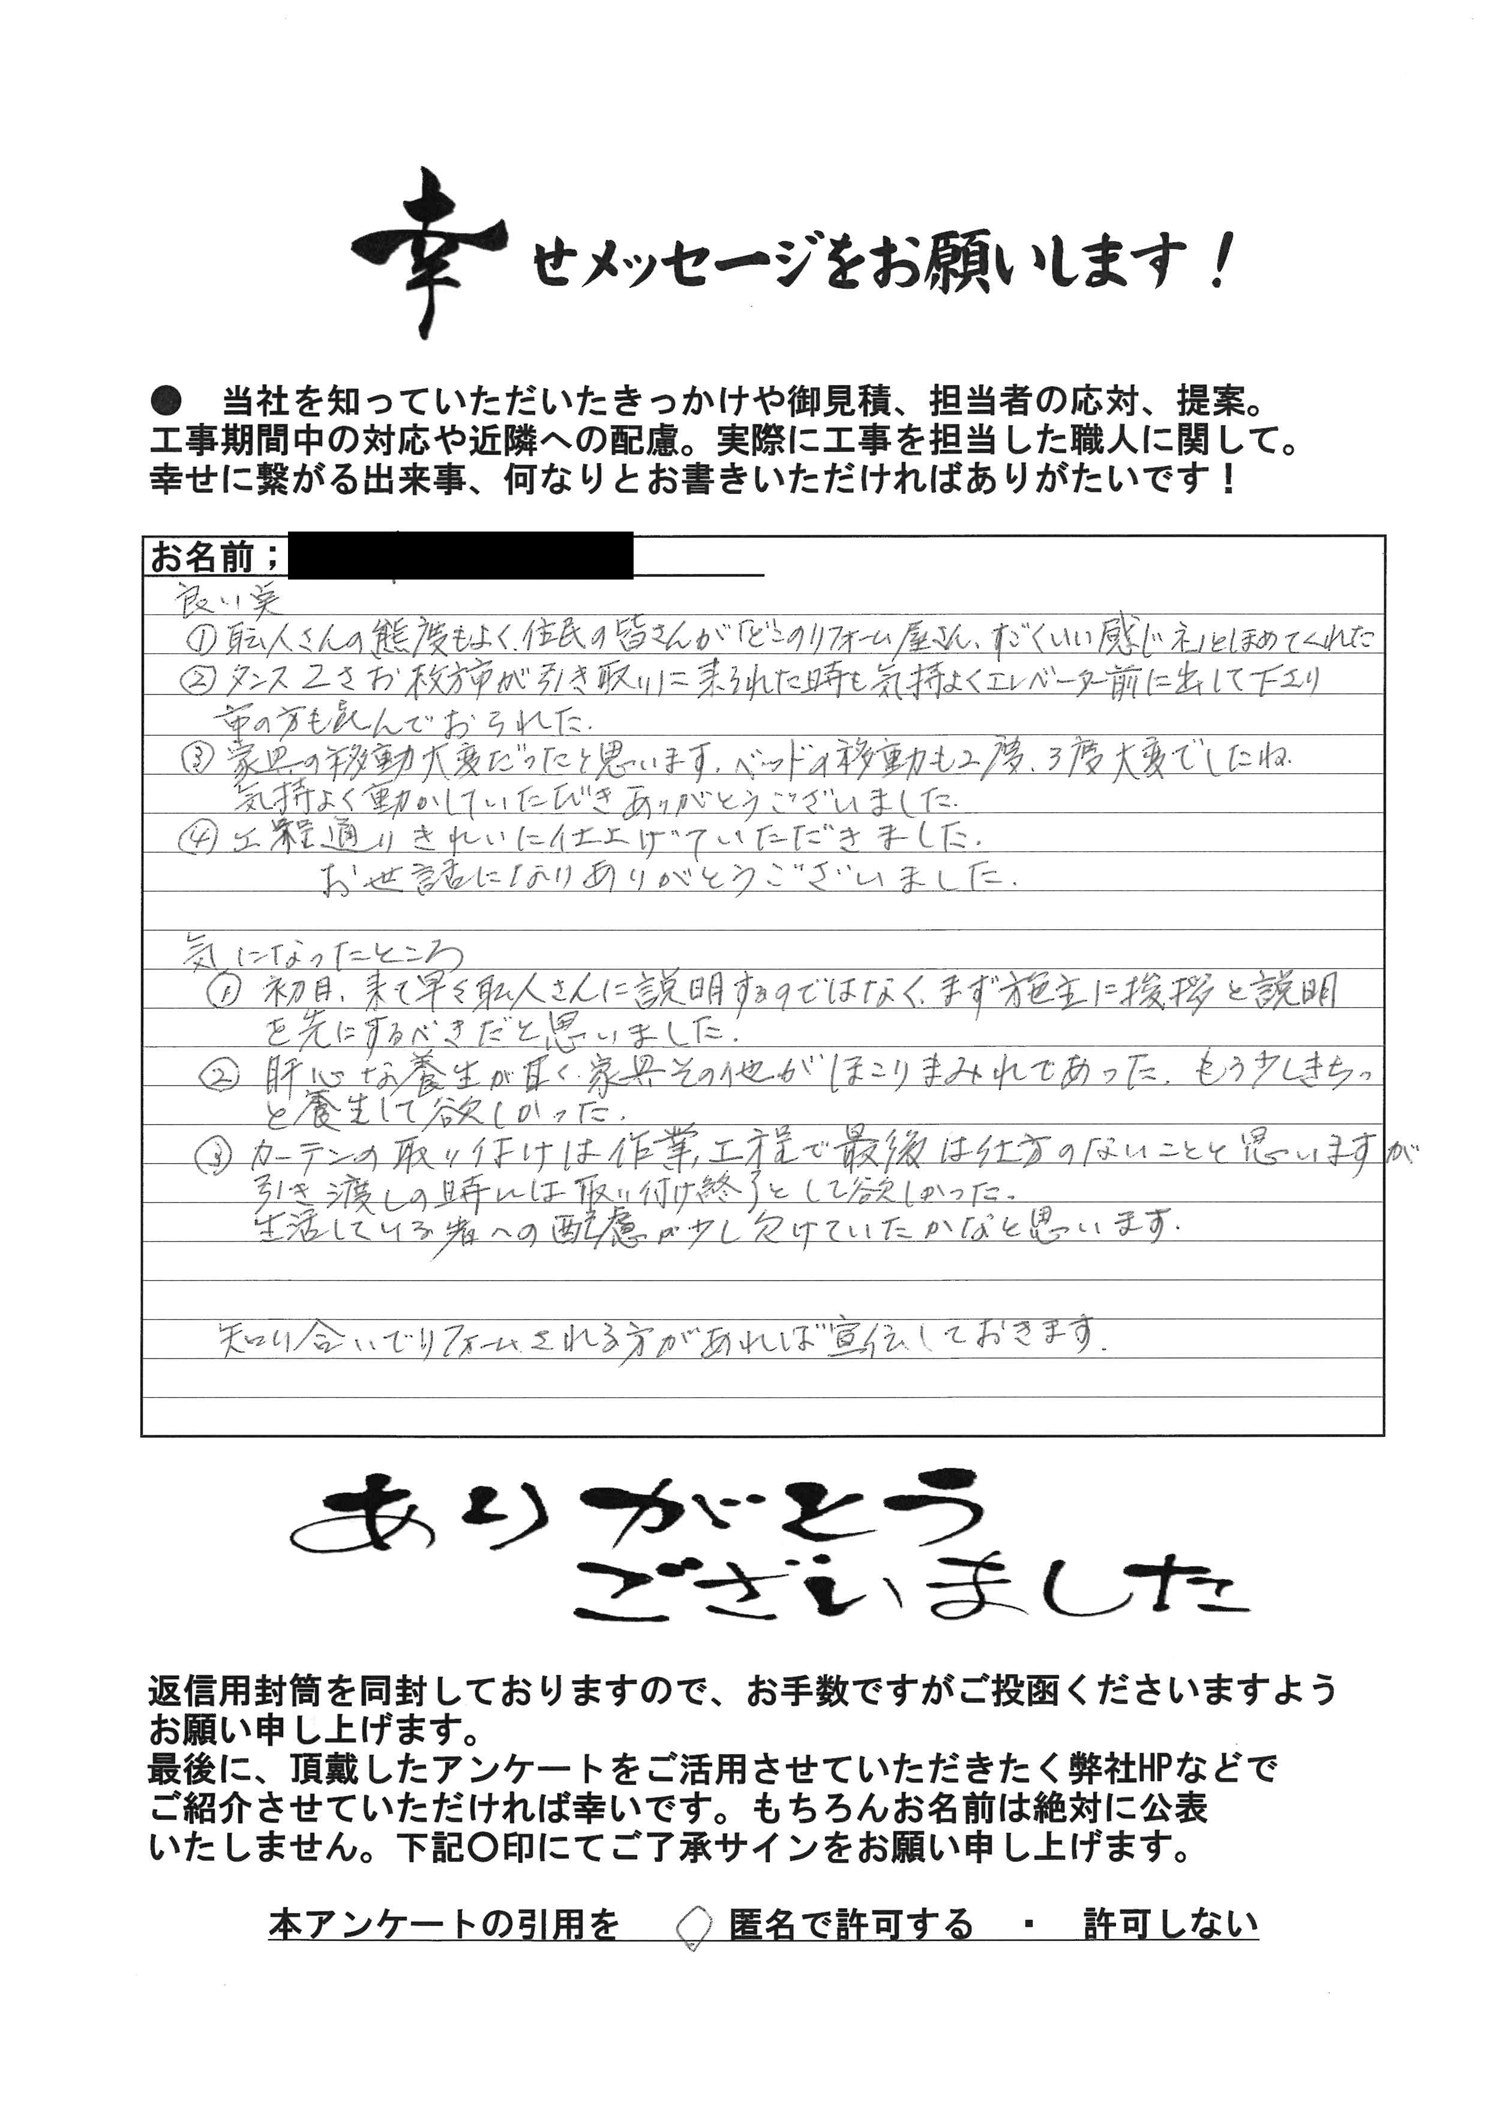 幸せメッセージをお願いします！
● 当社を知っていただいたきっかけや御見積、担当者の応対、提案。
工事期間中の対応や近隣への配慮。実際に工事を担当した職人に関して。
幸せに繋がる出来事、何なりとお書きいただければありがたいです！
お名前；
良い点
① 職人さんの態度もよく、住民の皆さんが「どこのリフォーム屋さん、すごくいい感じネ」とほめてくれた
② タンス2さお枚方市が引き取りに来られた時も気持よくエレベーター前に出して下さり
市の方も喜んでおられた.
③ 家具の移動大変だったと思います. ベッドの移動も2度、3度大変でしたね.
気持よく動かしていただきありがとうございました.
④ 工程通りきれいに仕上げていただきました.
お世話になりありがとうございました.
気になったところ
① 初日、来て早々職人さんに説明するのではなく、まず施主に挨拶と説明
を先にするべきだと思いました.
② 肝心な養生が甘く、家具その他がほこりまみれであった. もう少しきちっ
と養生して欲しかった.
③ カーテンの取り付けは作業、工程で最後は仕方のないことと思いますが
引き渡しの時には取り付け終了として欲しかった.
生活している者への配慮が少し欠けていたかなと思います.
知り合いでリフォームされる方があれば宣伝しておきます.
ありがとう
ございました
返信用封筒を同封しておりますので、お手数ですがご投函くださいますよう
お願い申し上げます。
最後に、頂戴したアンケートをご活用させていただきたく弊社HPなどで
ご紹介させていただければ幸いです。もちろんお名前は絶対に公表
いたしません。下記〇印にてご了承サインをお願い申し上げます。
本アンケートの引用を 〇 匿名で許可する ・ 許可しない